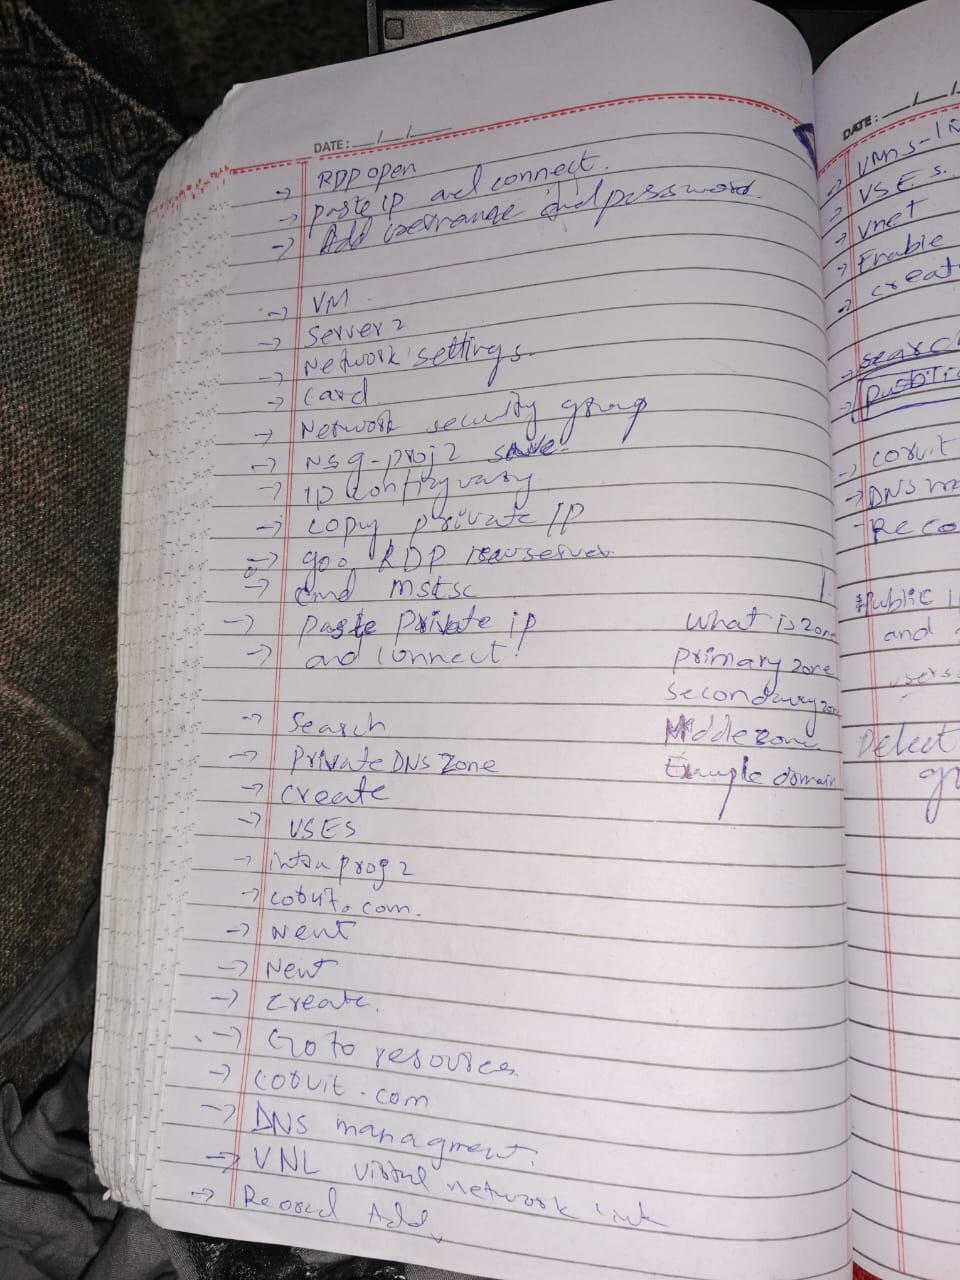 DATE: __/__/____
→ RDP open
→ paste ip and connect.
→ Add and password.
→ VM.
→ Server 2
→ Network settings.
→ Card
→ Network security group
→ NSg-proj2 save.
→ ip
→ copy private IP
→ goo RDP
→ cmd mstsc
→ paste Private ip
→ and connect!
→ Search
→ Private DNS Zone
→ create
→ VSES
→ prog 2
→ .com.
→ Next
→ Next
→ create.
→ Go to resources
→ cobuit.com
→ DNS managment.
→ VNL network link
→ Record Add
What is zone
primary zone
secondary zone
Middle zone
Example domain
DATE: __/__/
→
→ VSES.
→ Vnet
→ Enable
→ creat
→ search
→
→
→ DNS
- Reco
Public i
and
users
Delect